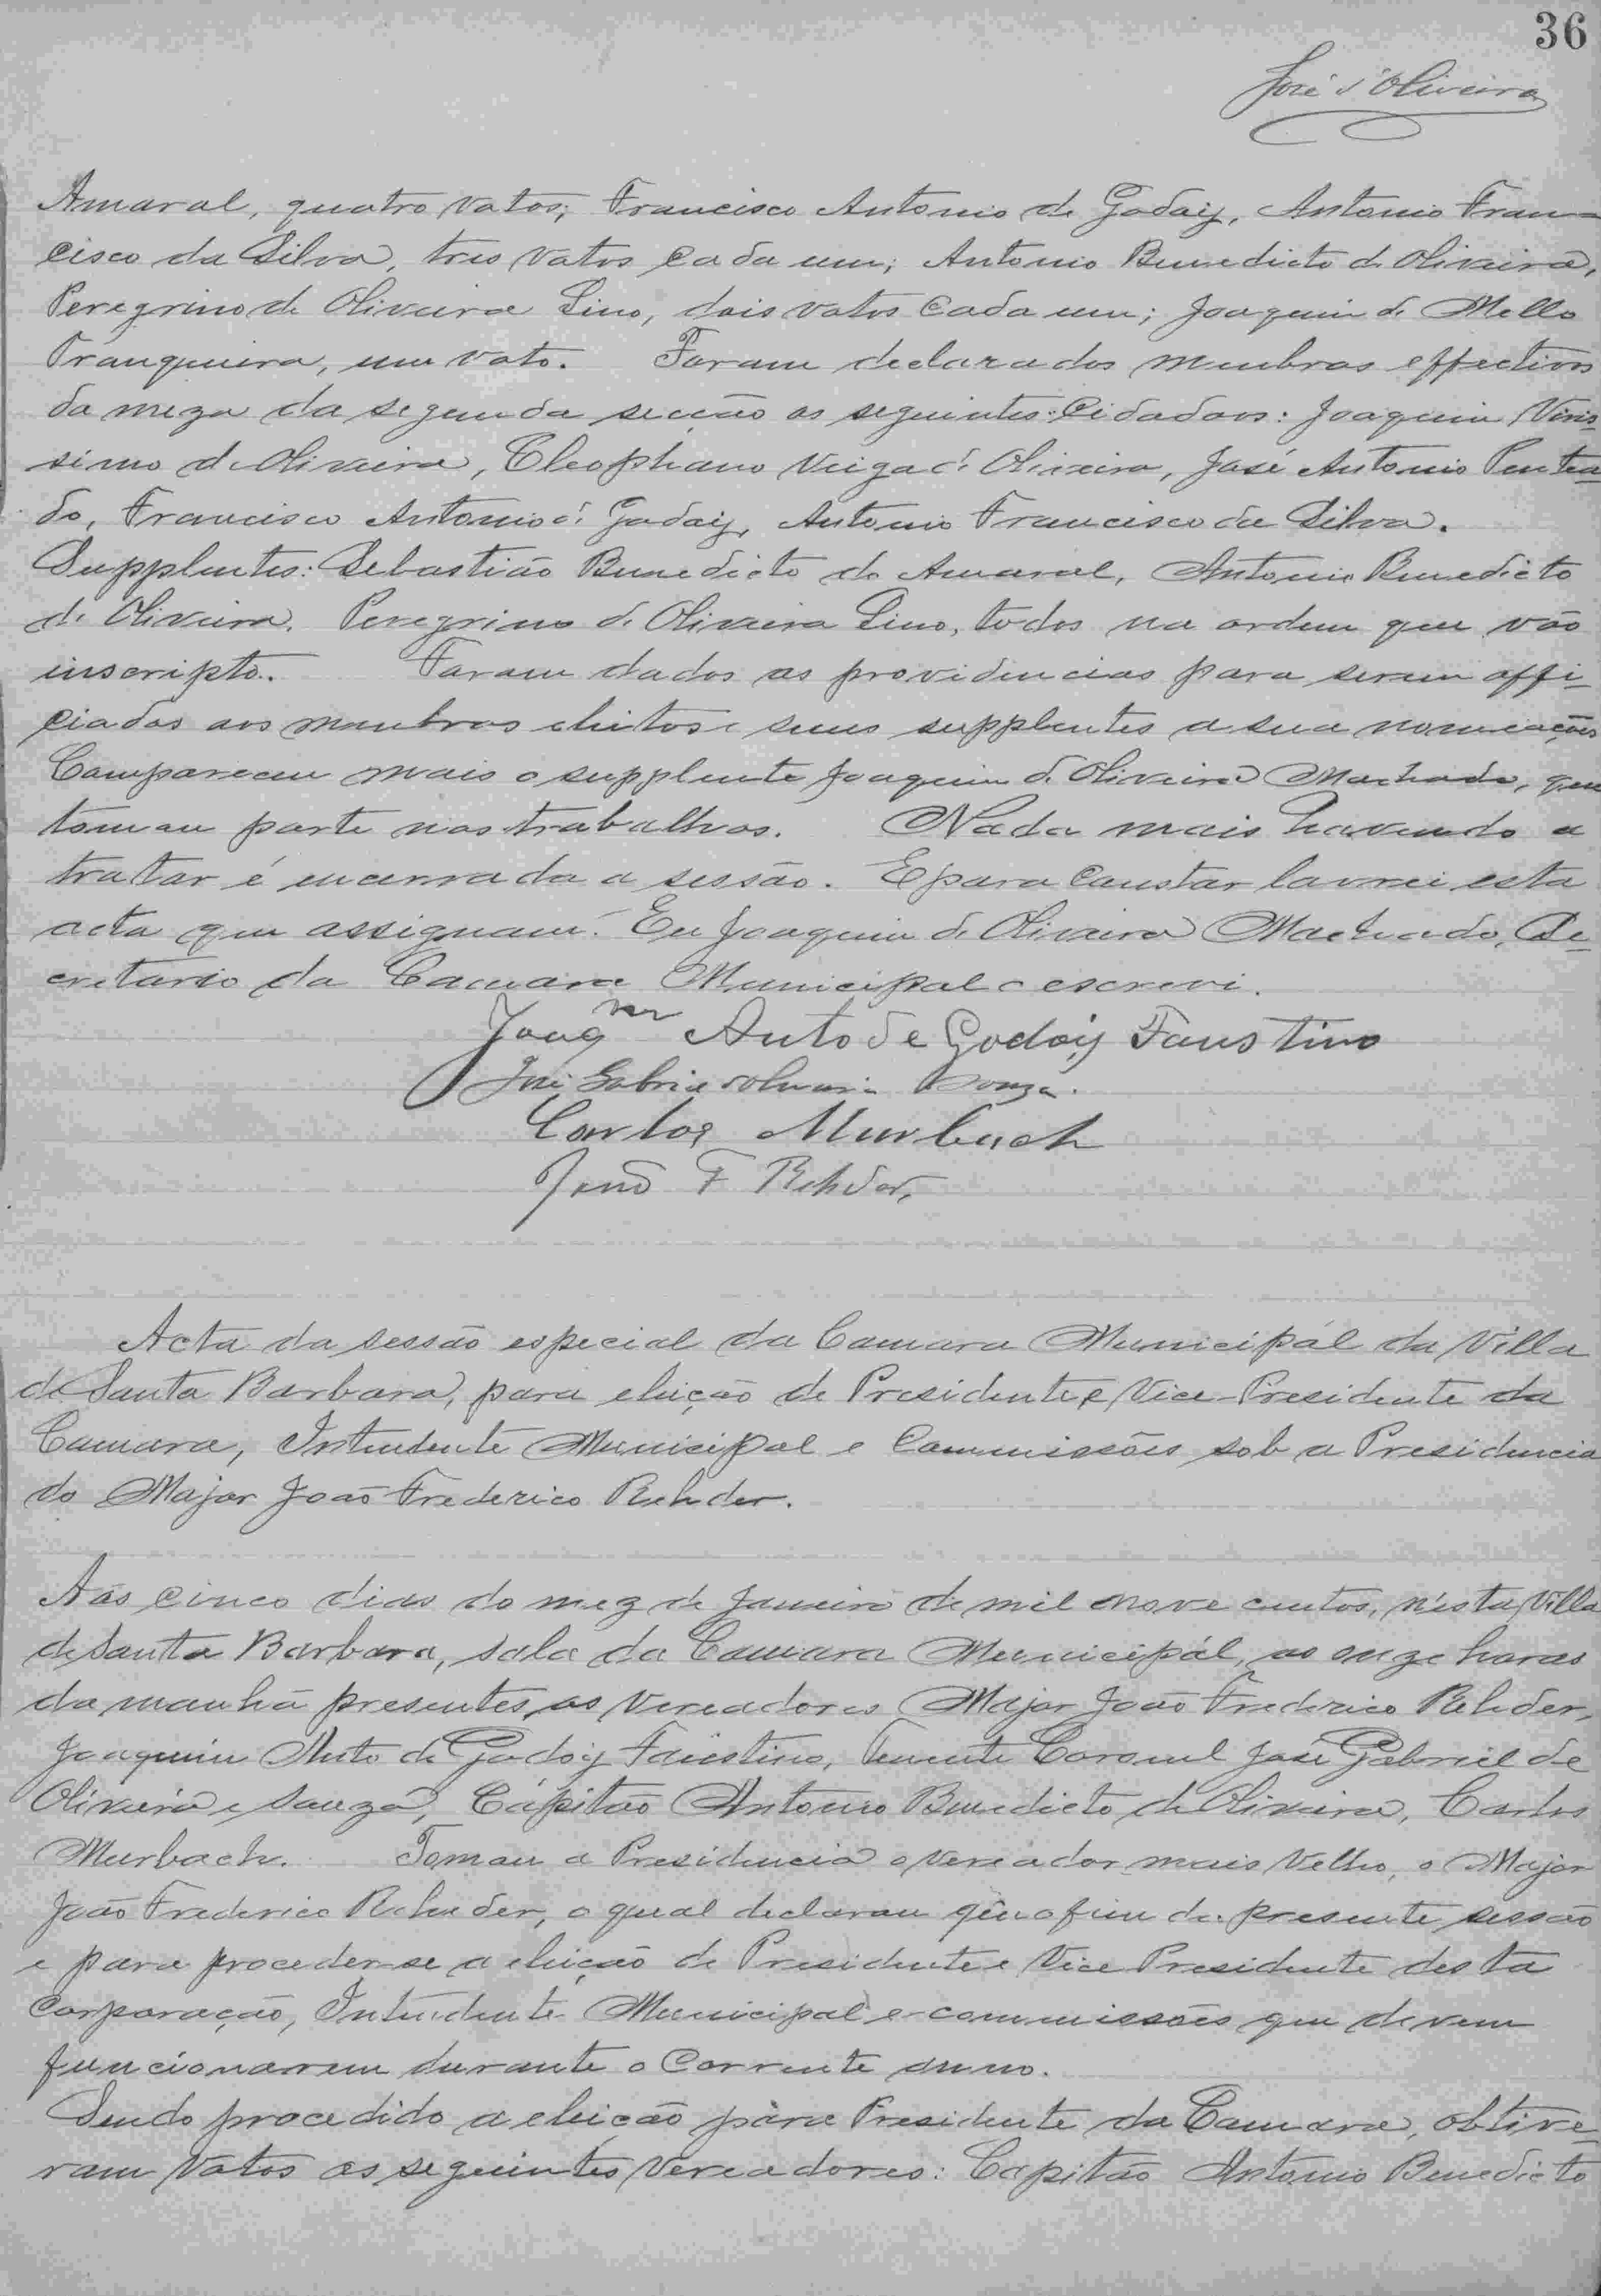 36
José d'Oliveira
Amaral, quatro votos; Francisco Antonio de Godoy, Antonio Fran-
cisco da Silva, tres votos cada um; Antonio Benedicto de Oliveira,
Peregrino de Oliveira Lino, dois votos cada um; Joaquim de Mello
Tranqueira, um voto. Foram declarados membros effectivos
da meza da segunda secção os seguintes Cidadãos: Joaquim Viris-
simo de Oliveira, Cleophano Veiga de Oliveira, José Antonio Pentea-
do, Francisco Antonio de Godoy, Antonio Francisco da Silva.
Supplentes: Sebastião Benedicto do Amaral, Antonio Benedicto
de Oliveira, Peregrino de Oliveira Lino, todos na ordem que vão
inscripto. Foram dados as providencias para serem offi-
ciados aos membros eleitos e seus supplentes a sua nomeações
Compareceu mais o supplente Joaquim de Oliveira Machado, que
tomou parte nos trabalhos. Nada mais havendo a
tratar é encerrada a sessão. E para constar lavrei esta
acta que assignam. Eu Joaquim de Oliveira Machado, Se-
cretario da Camara Municipal o escrevi.
Joaqm Anto de Godoy Faustino
José Gabriel Oliveira Souza.
Carlos Murbach
João F Rehder,
Acta da sessão especial da Camara Municipál da Villa
de Santa Barbara, para eleição de Presidente e Vice-Presidente da
Camara, Intendente Municipal e Commissões sob a Presidencia
do Major João Frederico Rehder.
Aos cinco dias do mez de Janeiro de mil nove centos, n'esta Villa
de Santa Barbara, sala da Camara Municipál, as onze horas
da manhã presentes, os Vereadores Major João Frederico Rehder,
Joaquim Anto de Godoy Faustino, Tenente Coronel José Gabriel de
Oliveira e Souza, Capitão Antonio Benedicto de Oliveira, Carlos
Murbach. Tomou a Presidencia o Vereador mais Velho, o Major
João Frederico Rehder, o qual declarou que o fim da presente sessão
e para proceder-se a eleição de Presidente e Vice Presidente desta
Corporação, Intendente Municipal e commissões que devem
funcionarem durante o Corrente anno.
Sendo procedido a eleição pára Presidente da Camara, obtive-
ram Votos os seguintes Vereadores: Capitão Antonio Benedicto